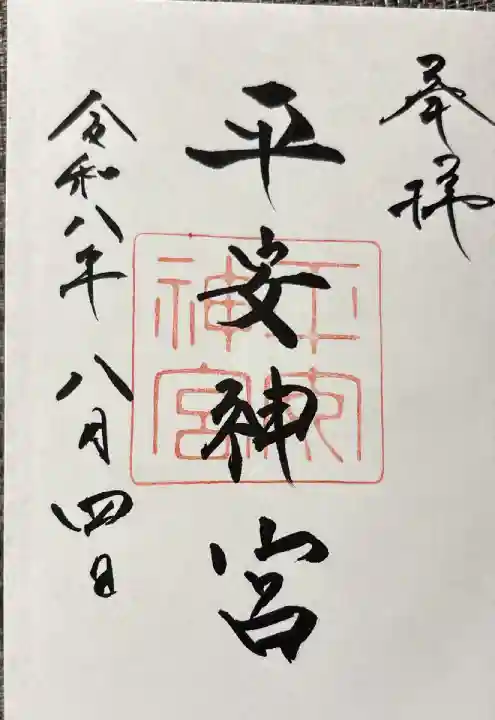 奉拝
平安神宮
平安神宮
令和八年 八月四日